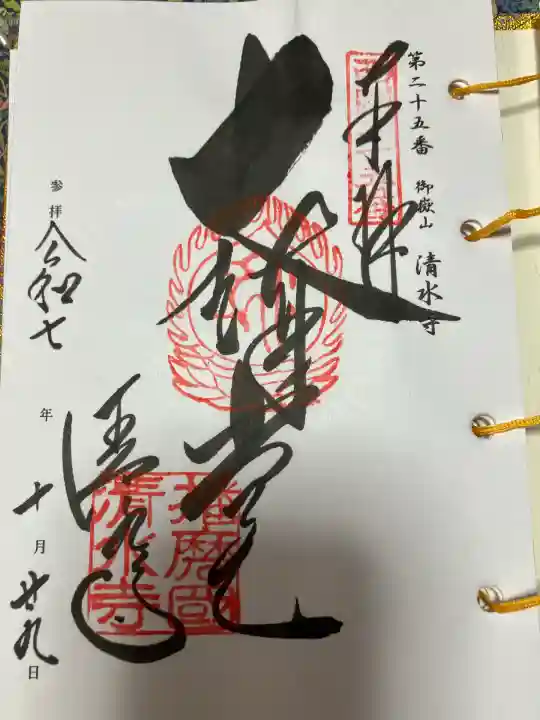 第二十五番　御嶽山　清水寺
奉拝
大講堂
清水寺
播磨國
清水寺
参拝　令和七年　十月　廿九日